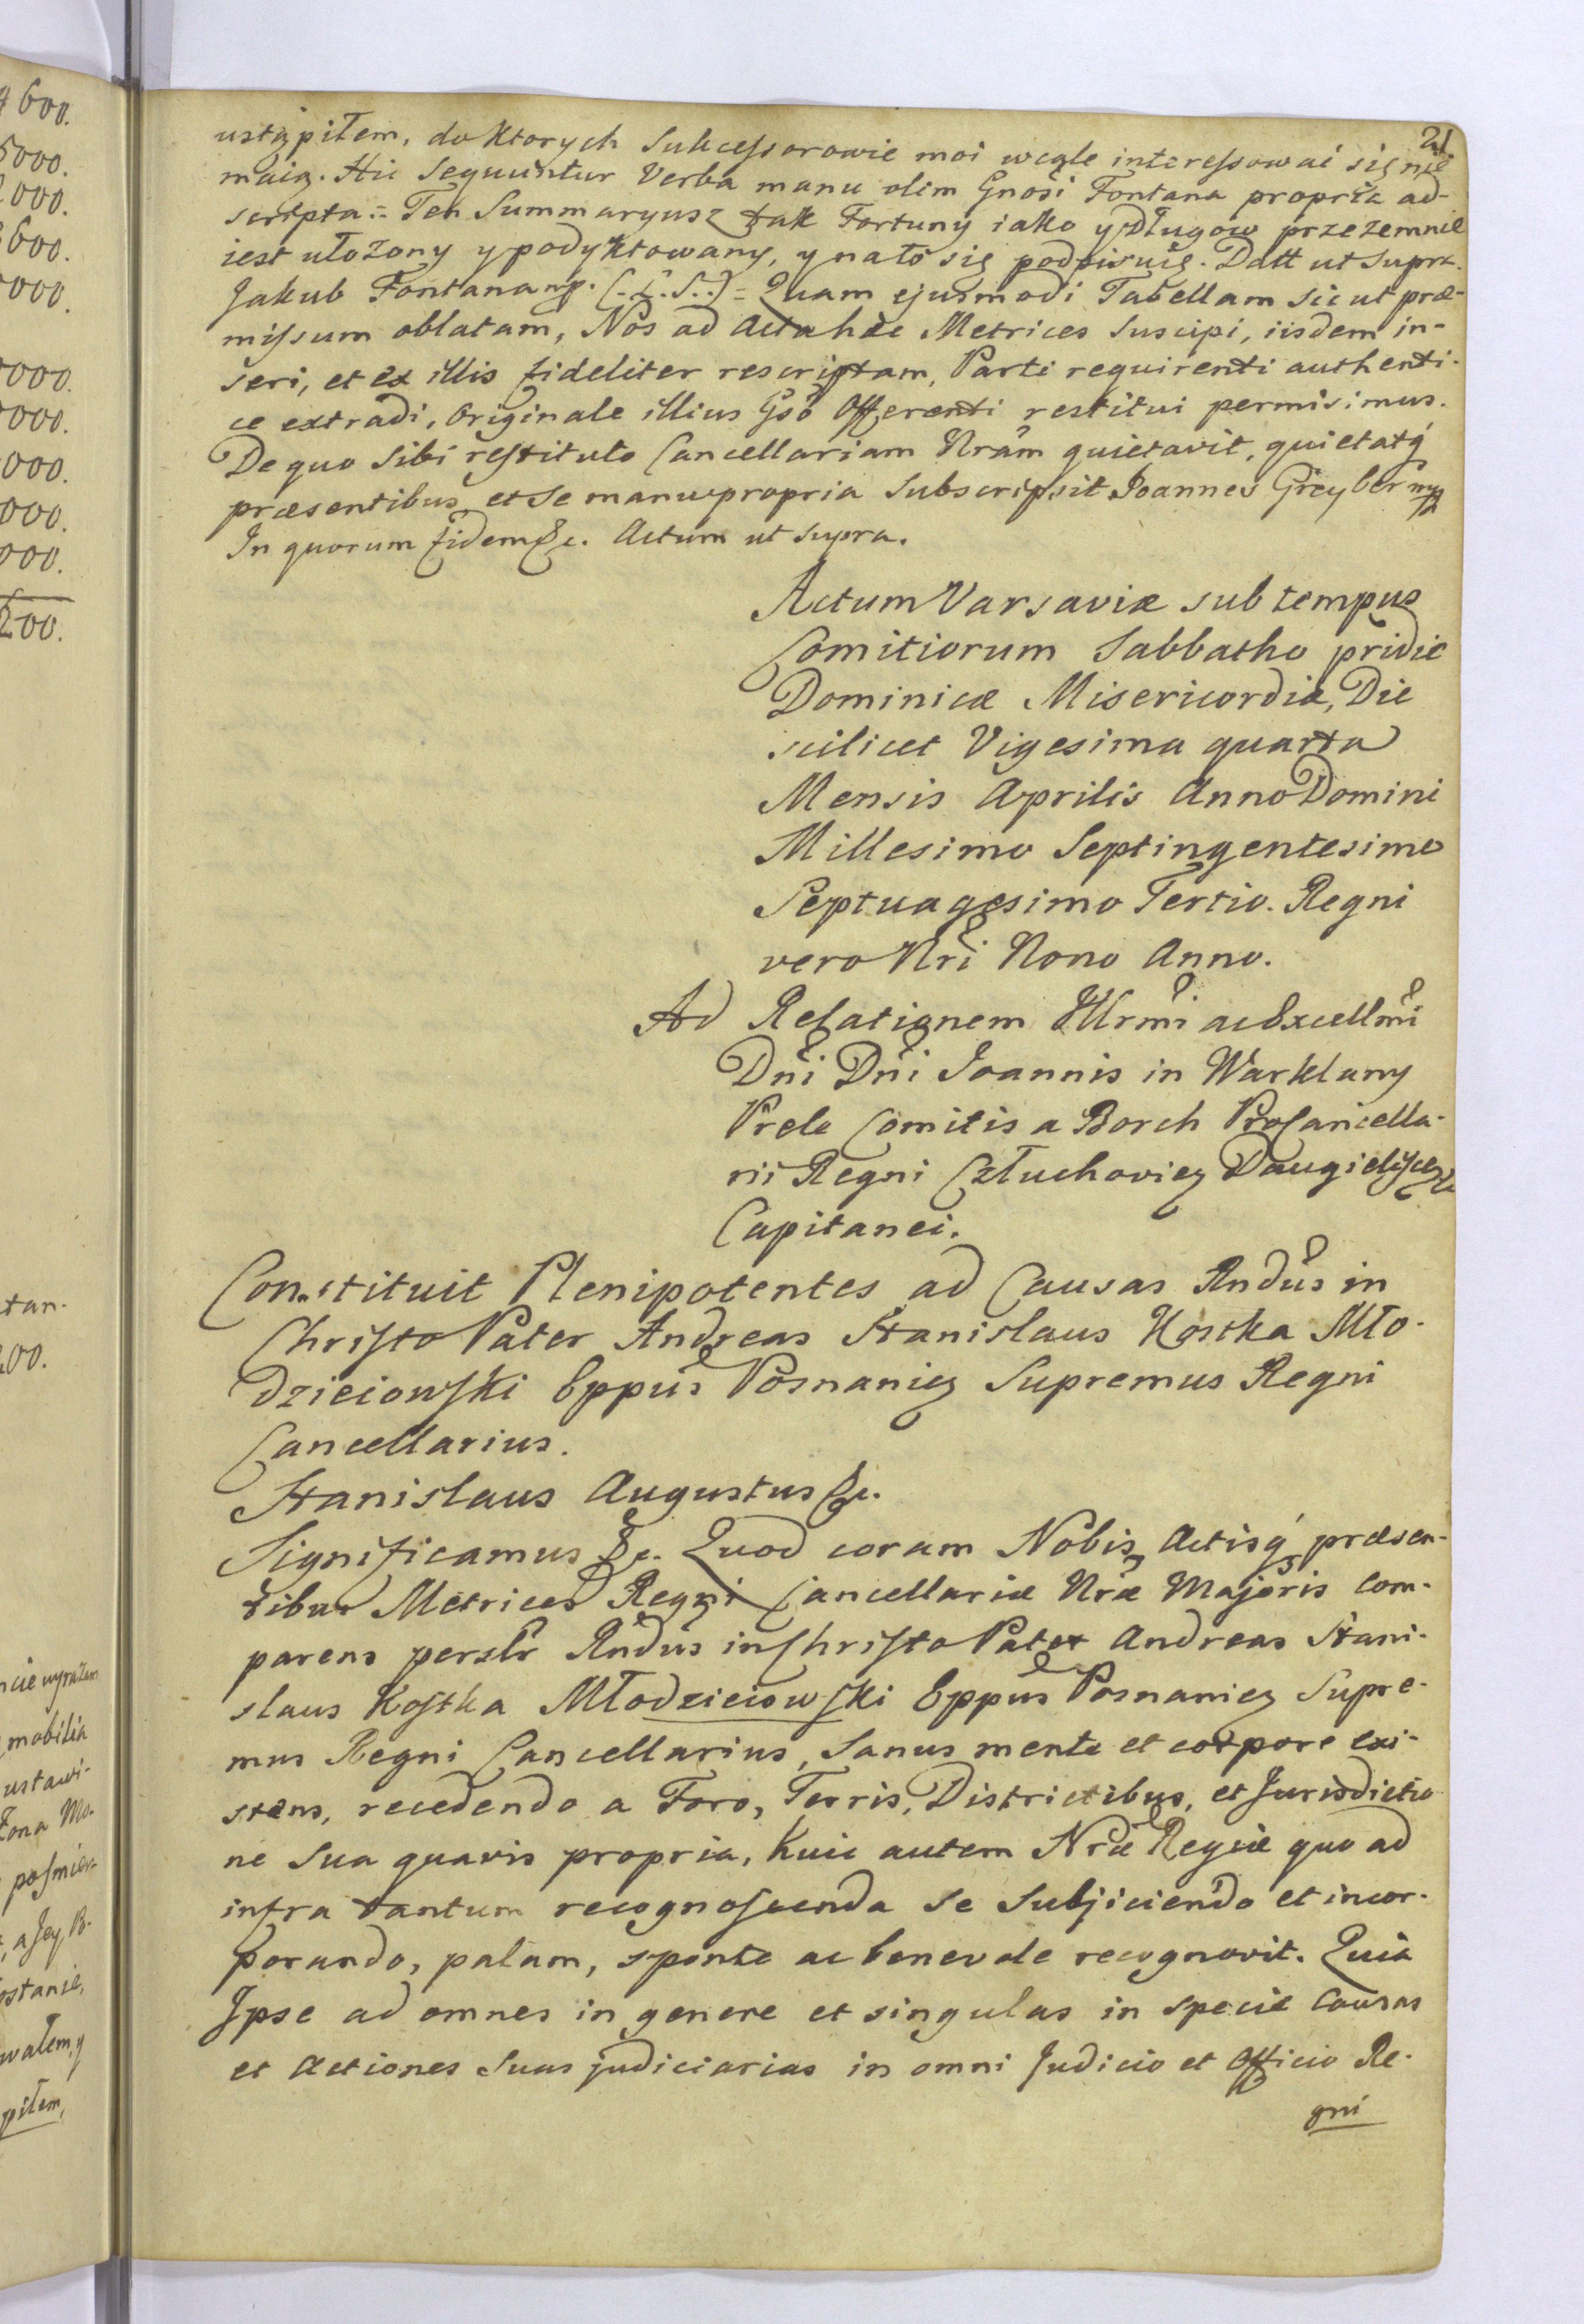 21
ustąpiłem, do ktorych Sukcessorowie moi wcale interessować się nie
maią. Hic Sequuntur Verba manu olim Gnosi Fontana propria ad-
scripta = Ten Summaryusz tak Fortuny iako y Długow przezemnie
iest ułożony y podyktowany, y na to się podpisuię. Datt ut supra.
Jakub Fontana mp. (.L.S.) = Quam ejusmodi Tabellam sicut præ-
missum oblatam, Nos ad Acta hæc Metrices suscipi, iisdem in-
seri, et ex illis fideliter rescriptam, Parti requirenti authenti-
ce extradi, Originale illius Gsō Offerenti restitui permisimus.
De quo sibi restituto Cancellariam Nrãm quietavit, quietatq́
præsentibus et se manu propria subscripsit Joannes Greyber mp
In quorum fidem &c. Actum ut supra.
Actum Varsaviæ sub tempus
Comitiorum Sabbatho pridie
Dominicæ Misericordiæ, Die
scilicet Vigesima quarta
Mensis Aprilis Anno Domini
Millesimo Septingentesimo
Septuagesimo Tertio. Regni
vero Nri Nono Anno.
Ad Relationem Illrmi ac Excellmi
Dni Dni Joannis in Warklany
Prele Comitis a Borch ProCancella-
rii Regni Człuchovien
Capitanei.
Constituit Plenipotentes ad Causas Rndus in
Christo Pater Andreas Stanislaus Kostka Mło-
dzieiowski Eppus Posnanien Supremus Regni
Cancellarius.
Stanislaus Augustus &c.
Significamus &c. Quod coram Nobis Actisq́ præsen-
tibus Metrices Regni Cancellariæ Nræ Majoris com-
parens perslr Rndus in Christo Pater Andreas Stani-
slaus Kostka Młodzieiowski Eppus Posnanien Supre-
mus Regni Cancellarius, sanus mente et corpore exi-
stens, recedendo a Foro, Terris, Districtibus, et Jurisdictio
ne sua quavis propria, huic autem Nræ Regiæ quo ad
infra tantum recognoscenda se subjiciendo et incor-
porando, palam, sponte ac benevole recognovit. Quia
Ipse ad omnes in genere et singulas in specie Causas
et Actiones suas judiciarias in omni Judicio et Officio Re-
gni